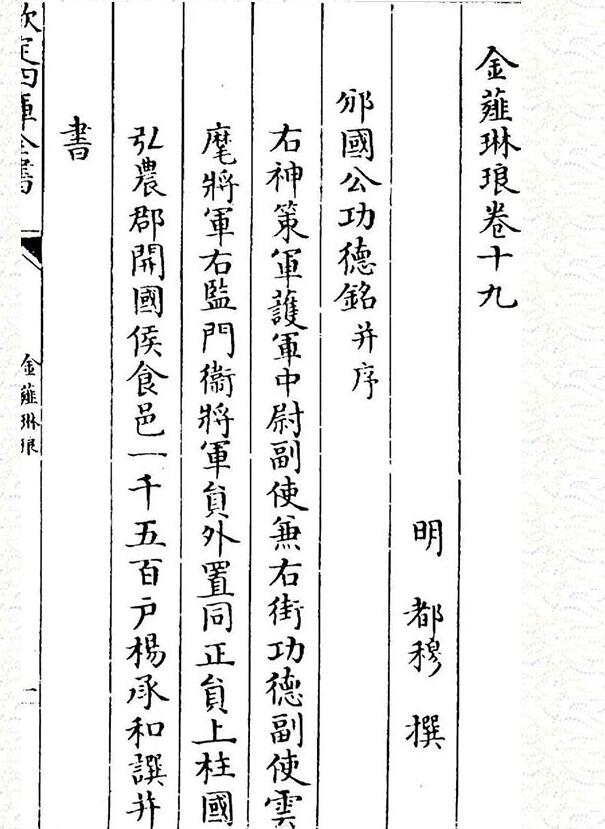 金薤琳琅卷十九
明 都穆 撰
邠國公功德銘并序
右神策軍護軍中尉副使兼右街功德副使雲
麾將軍右監門衞將軍負外置同正負上柱國
弘農郡開國侯食邑一千五百户楊承和譔并
書
欽定四庫全書
金薤琳琅
一